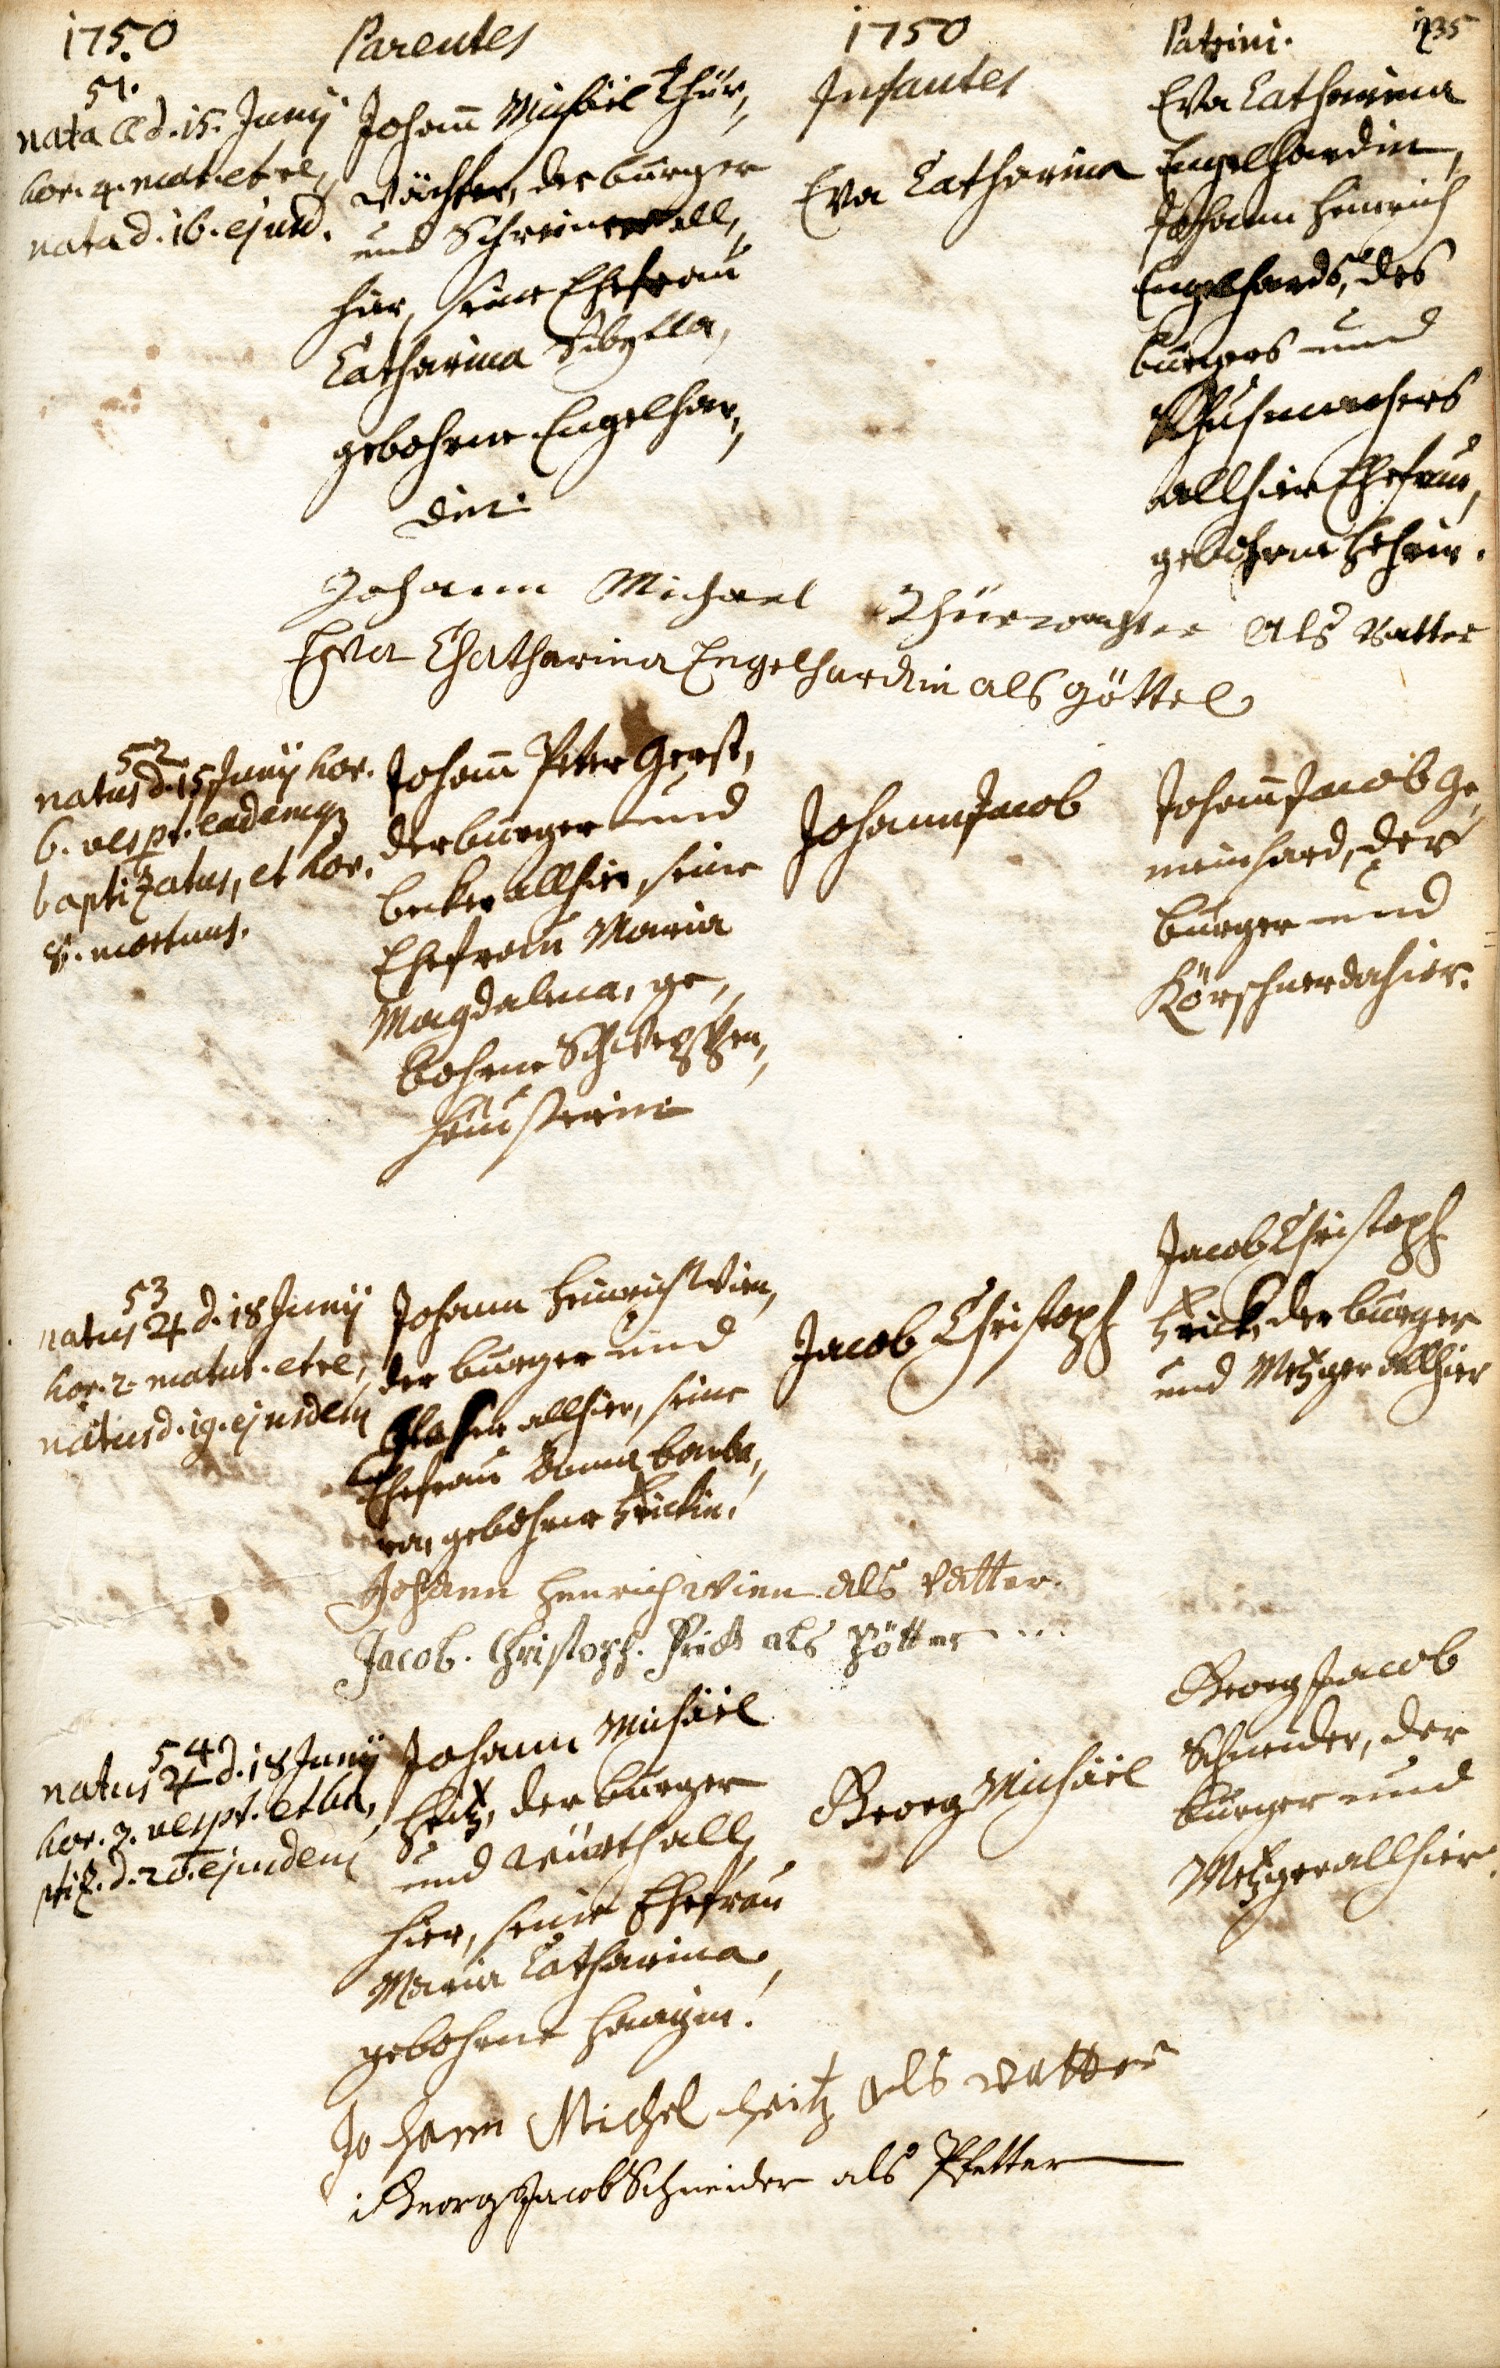 1750
Parentes
1750
Infantes
Patrini.
235
51.
nata ☾ d. 15. Junij
hor. 4. mat. et re,
nata d. 16. ejusd.
Johann Michäel Thür,
wächter, der burger
und Schreiner all,
hier, seine Ehefrau
Catharina Sibylla,
gebohrne Engelhar,
din.
Eva Catharina
Eva Catharina
Engelhardin,
Johann Heinrich
Engelhards, des
burgers und
Schuhmachers
allhier Ehefrau,
gebohrne
Johann Michael Thürwachter als Vatter
Eva Chatharina Engelhardin als göttel
52
natus d. 15 Junij hor.
6. vespt. eademq
baptizatus, et hor.
8. mortuus.
Johann Peter Gerst,
der burger und
becker allhier, seine
Ehefrau Maria
Magdalena, ge,
bohrne Schweppen,
häuserin
Johann Jacob
Johann Jacob Ge,
meinhard, der
burger und
Körschner dahier.
53
natus ♃ d. 18 Junij
hor. 2. matut. et re,
natus d. 19. ejusdem
Johann Heinrich Wien,
der burger und
Glaser allhier, seine
Ehefrau Anna barba,
ra, gebohrne Frickin.
Jacob Christoph
Jacob Christoph
Frick, der burger
und Metzger allhier
Johann Henrich Wien als Vatter.
Jacob. Christoph. Frick als Pötter
54
natus ♃ d. 18 Junij
hor. 3. vespt. et ba,
ptiz. d. 20. ejusdem
Johann Michäel
Heitz, der burger
und Würth all,
hier, seine Ehefrau
Maria Catharina,
gebohrne
Georg Michäel
Georg Jacob
Schneider, der
burger und
Metzger allhier.
Johann Michel Heitz als Vatter
Georg Jacob Schneider als Pfetter